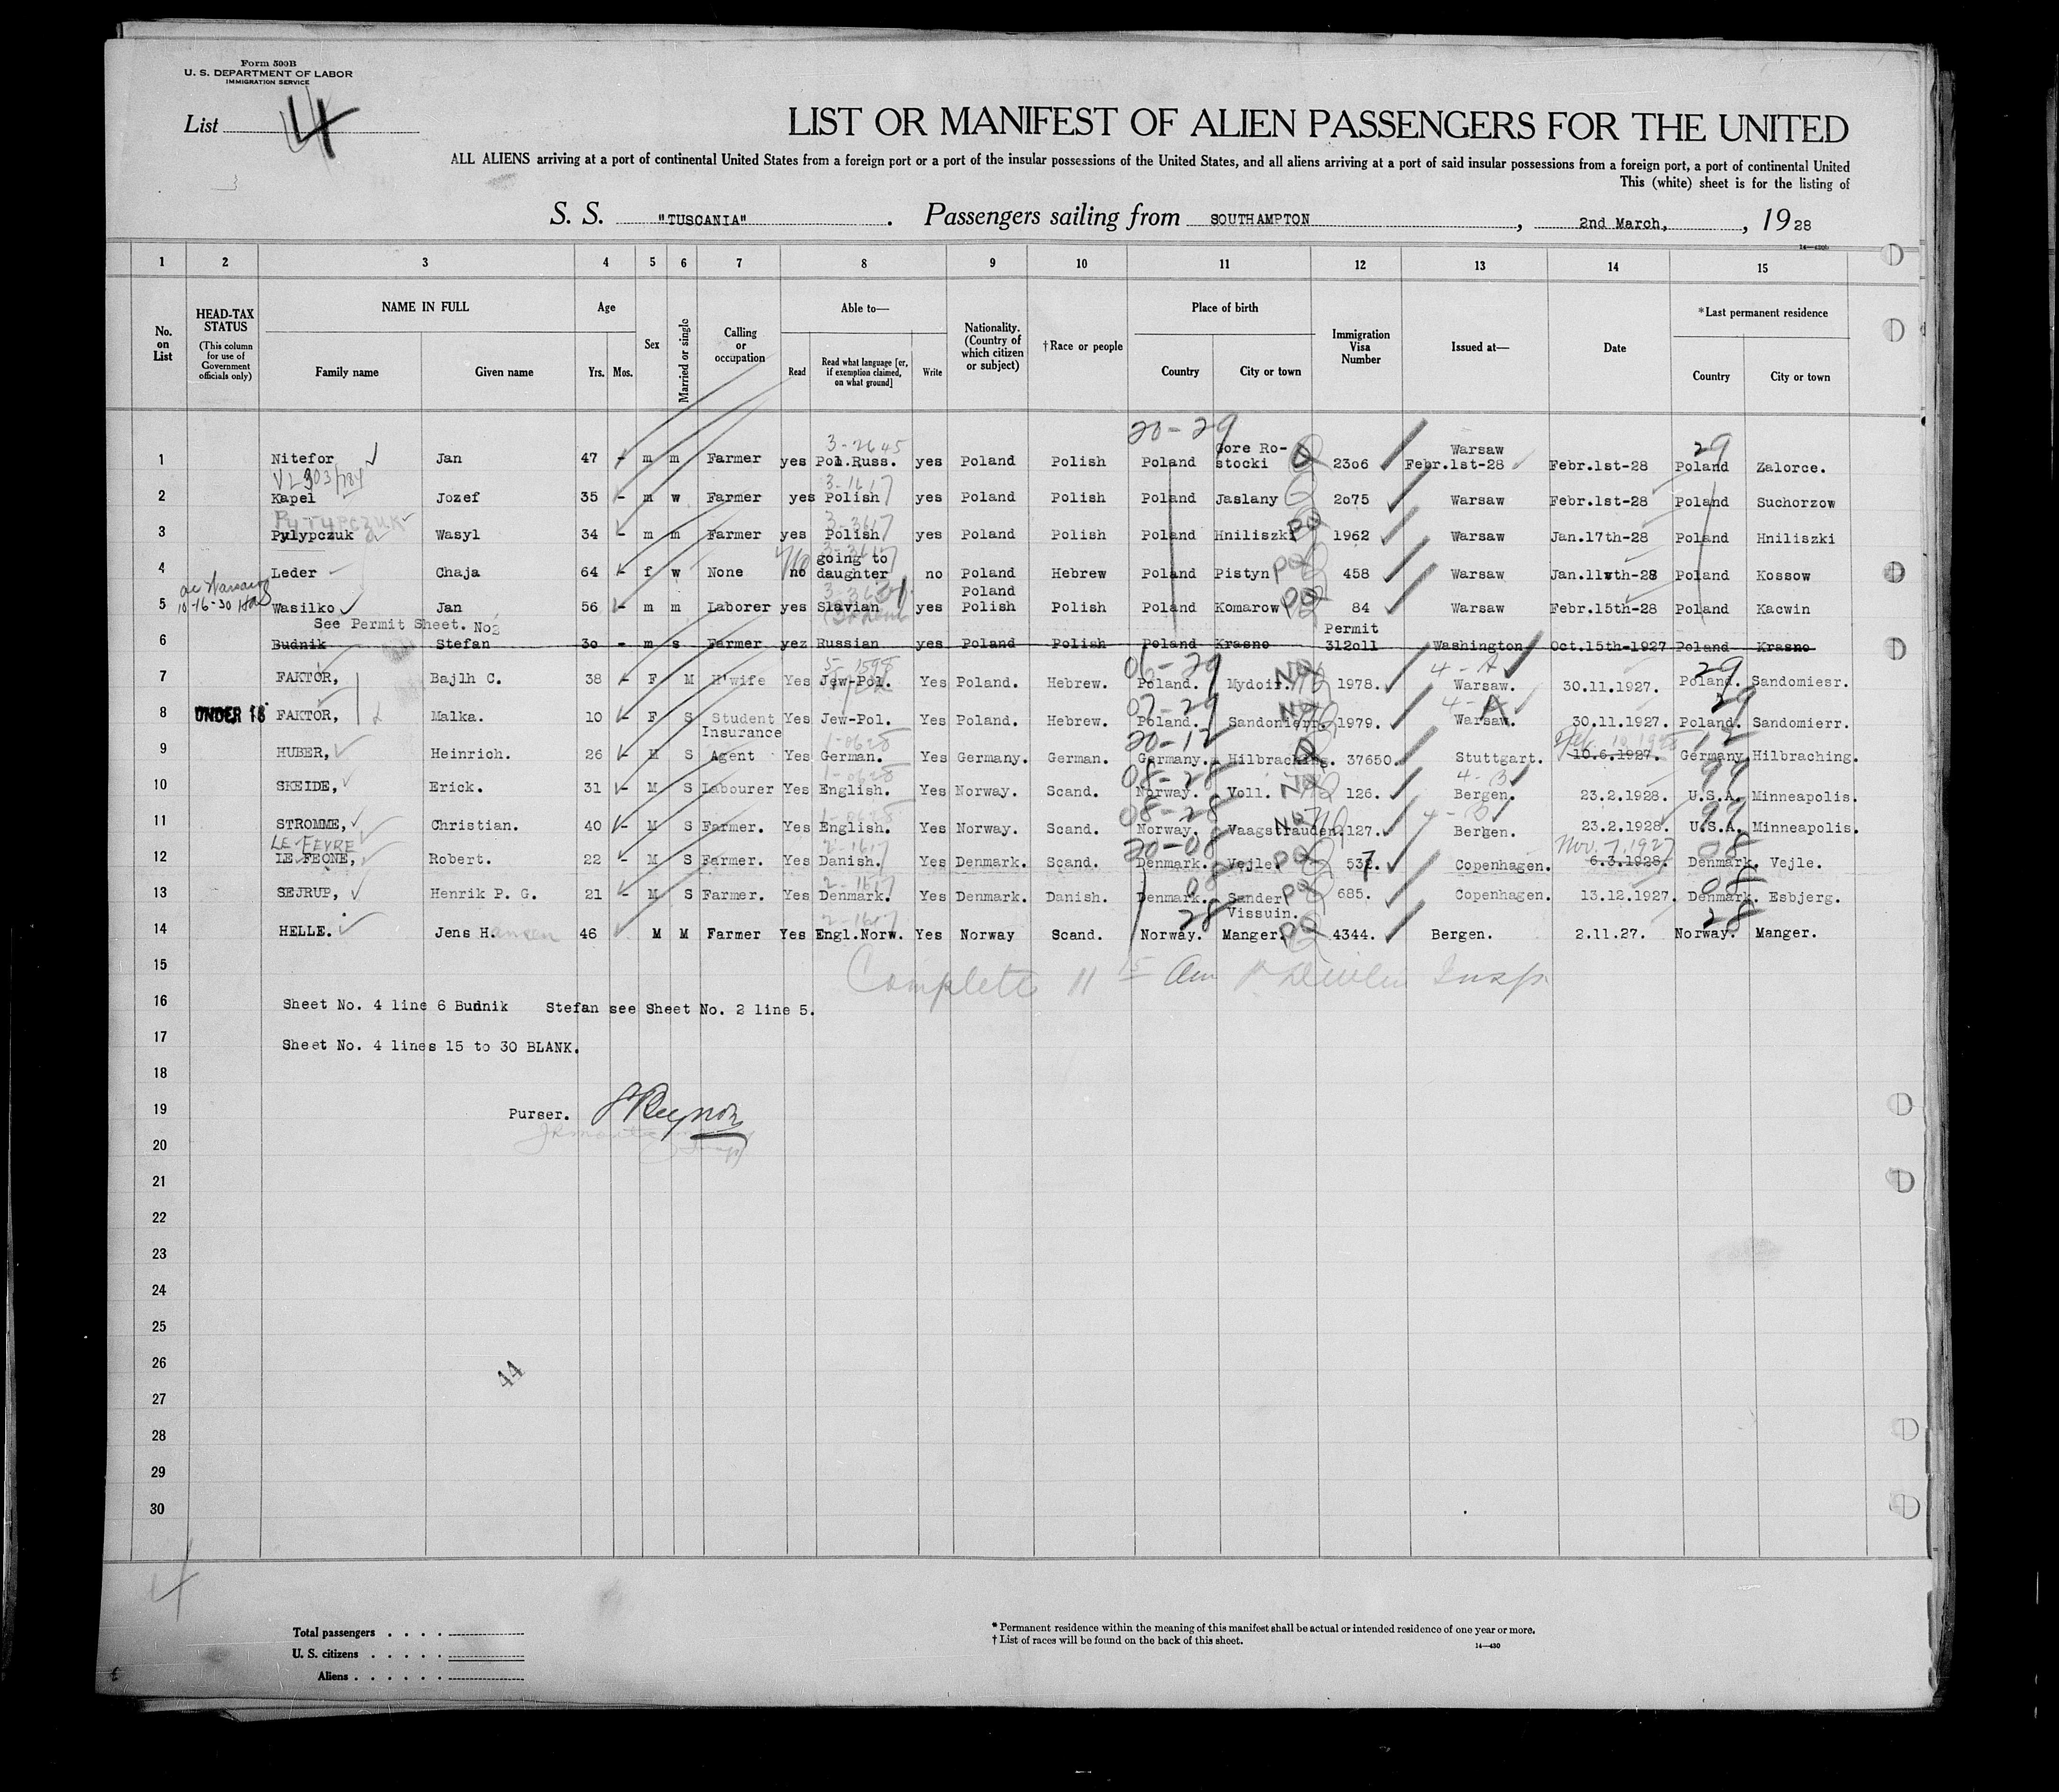 Form 500B
U. S. DEPARTMENT OF LABOR
IMMIGRATION SERVICE
List 4
LIST OR MANIFEST OF ALIEN PASSENGERS FOR THE UNITED
ALL ALIENS arriving at a port of continental United States from a foreign port or a port of the insular possessions of the United States, and all aliens arriving at a port of said insular possessions from a foreign port, a port of continental United
This (white) sheet is for the listing of
S. S. "TUSCANIA". Passengers sailing from SOUTHAMPTON, 2nd March, , 1928
14—430
1 2 3 4 5 6 7 8 9 10 11 12 13 14 15
No. on List
HEAD-TAX STATUS (This column for use of Government officials only)
NAME IN FULL
Family name Given name
Age
Yrs. Mos.
Sex
Married or single
Calling or occupation
Able to—
Read Read what language [or, if exemption claimed, on what ground] Write
Nationality. (Country of which citizen or subject)
†Race or people
Place of birth
Country City or town
Immigration Visa Number
Issued at—
Date
*Last permanent residence
Country City or town
20-29
3-2645 Gore Ro- Warsaw 29
1 Nitefor Jan 47 - m m Farmer yes Pol.Russ. yes Poland Polish Poland stocki 2306 Febr.1st-28 Febr.1st-28 Poland Zalorce.
3-1617
2 Kapel Jozef 35 - m w Farmer yes Polish yes Poland Polish Poland Jaslany 2075 Warsaw Febr.1st-28 Poland Suchorzow
PYTYPCZUK 3-3617
3 Pylypczuk Wasyl 34 - m m Farmer yes Polish yes Poland Polish Poland Hniliszki PQ 1962 Warsaw Jan.17th-28 Poland Hniliszki
No going to
4 Leder Chaja 64 - f w None no daughter no Poland Hebrew Poland Pistyn PQ 458 Warsaw Jan.11th-28 Poland Kossow
10-16-30 Poland
5 Wasilko Jan 56 - m m Laborer yes Slavian yes Polish Polish Poland Komarow PQ 84 Warsaw Febr.15th-28 Poland Kacwin
See Permit Sheet. No2 Permit
6 Budnik Stefan 30 - m s Farmer yez Russian yes Poland Polish Poland Krasno 312011 Washington Oct.15th-1927 Poland Krasno
5-1598 06-29 NQ 4-A 29
7 FAKTOR, Bajlh C. 38 - F M H'wife Yes Jew-Pol. Yes Poland. Hebrew. Poland. Mydoif. 1978. Warsaw. 30.11.1927. Poland. Sandomiesr.
07-29 NQ 4-A 29
8 UNDER 16 FAKTOR, Malka. 10 - F S Student Yes Jew-Pol. Yes Poland. Hebrew. Poland. Sandonierr. 1979. Warsaw. 30.11.1927. Poland. Sandomierr.
Insurance 1-0628 20-12
9 HUBER, Heinrich. 26 - M S Agent Yes German. Yes Germany. German. Germany. Hilbraching. 37650. Stuttgart. 10.6.1927. Germany. Hilbraching.
1-0628 08-28 NQ 4-B 99
10 SKEIDE, Erick. 31 - M S Labourer Yes English. Yes Norway. Scand. Norway. Voll. 126. Bergen. 23.2.1928. U.S.A. Minneapolis.
1-0628 08-28 NQ 4-B 99
11 STROMME, Christian. 40 - M S Farmer. Yes English. Yes Norway. Scand. Norway. Vaagstrauden. 127. Bergen. 23.2.1928. U.S.A. Minneapolis.
LE FEVRE 2-1617 20-08 Nov. 7, 1927 08
12 LE FEONE, Robert. 22 - M S Farmer. Yes Danish. Yes Denmark. Scand. Denmark. Vejle. PQ 537. Copenhagen. 6.3.1928. Denmark. Vejle.
2-1617 08 08
13 SEJRUP, Henrik P. G. 21 - M S Farmer. Yes Denmark. Yes Denmark. Danish. Denmark. Sander PQ 685. Copenhagen. 13.12.1927. Denmark. Esbjerg.
2-1607 28 Vissuin. 28
14 HELLE. Jens Hansen 46 M M Farmer Yes Engl.Norw. Yes Norway Scand. Norway. Manger. PQ 4344. Bergen. 2.11.27. Norway. Manger.
15 Complete 11 15 Am Insp.
16 Sheet No. 4 line 6 Budnik Stefan see Sheet No. 2 line 5.
17 Sheet No. 4 lines 15 to 30 BLANK.
18
19 Purser.
20
21
22
23
24
25
26 44
27
28
29
30
4
Total passengers . . . .
U. S. citizens . . . . .
Aliens . . . . . .
* Permanent residence within the meaning of this manifest shall be actual or intended residence of one year or more.
† List of races will be found on the back of this sheet.
14—430